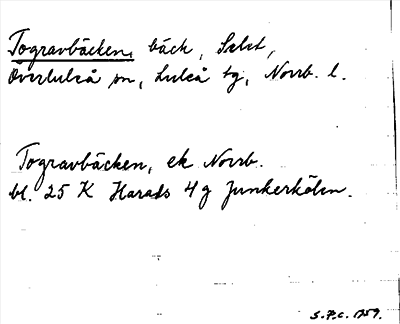 Togravbäcken, bäck, Selet,
Överluleå sn, Luleå tg, Norrb. l.
Togravbäcken, ek Norrb.
bl. 25 K Harads 4 g Junkerkölen.
S.P.C. 1959.